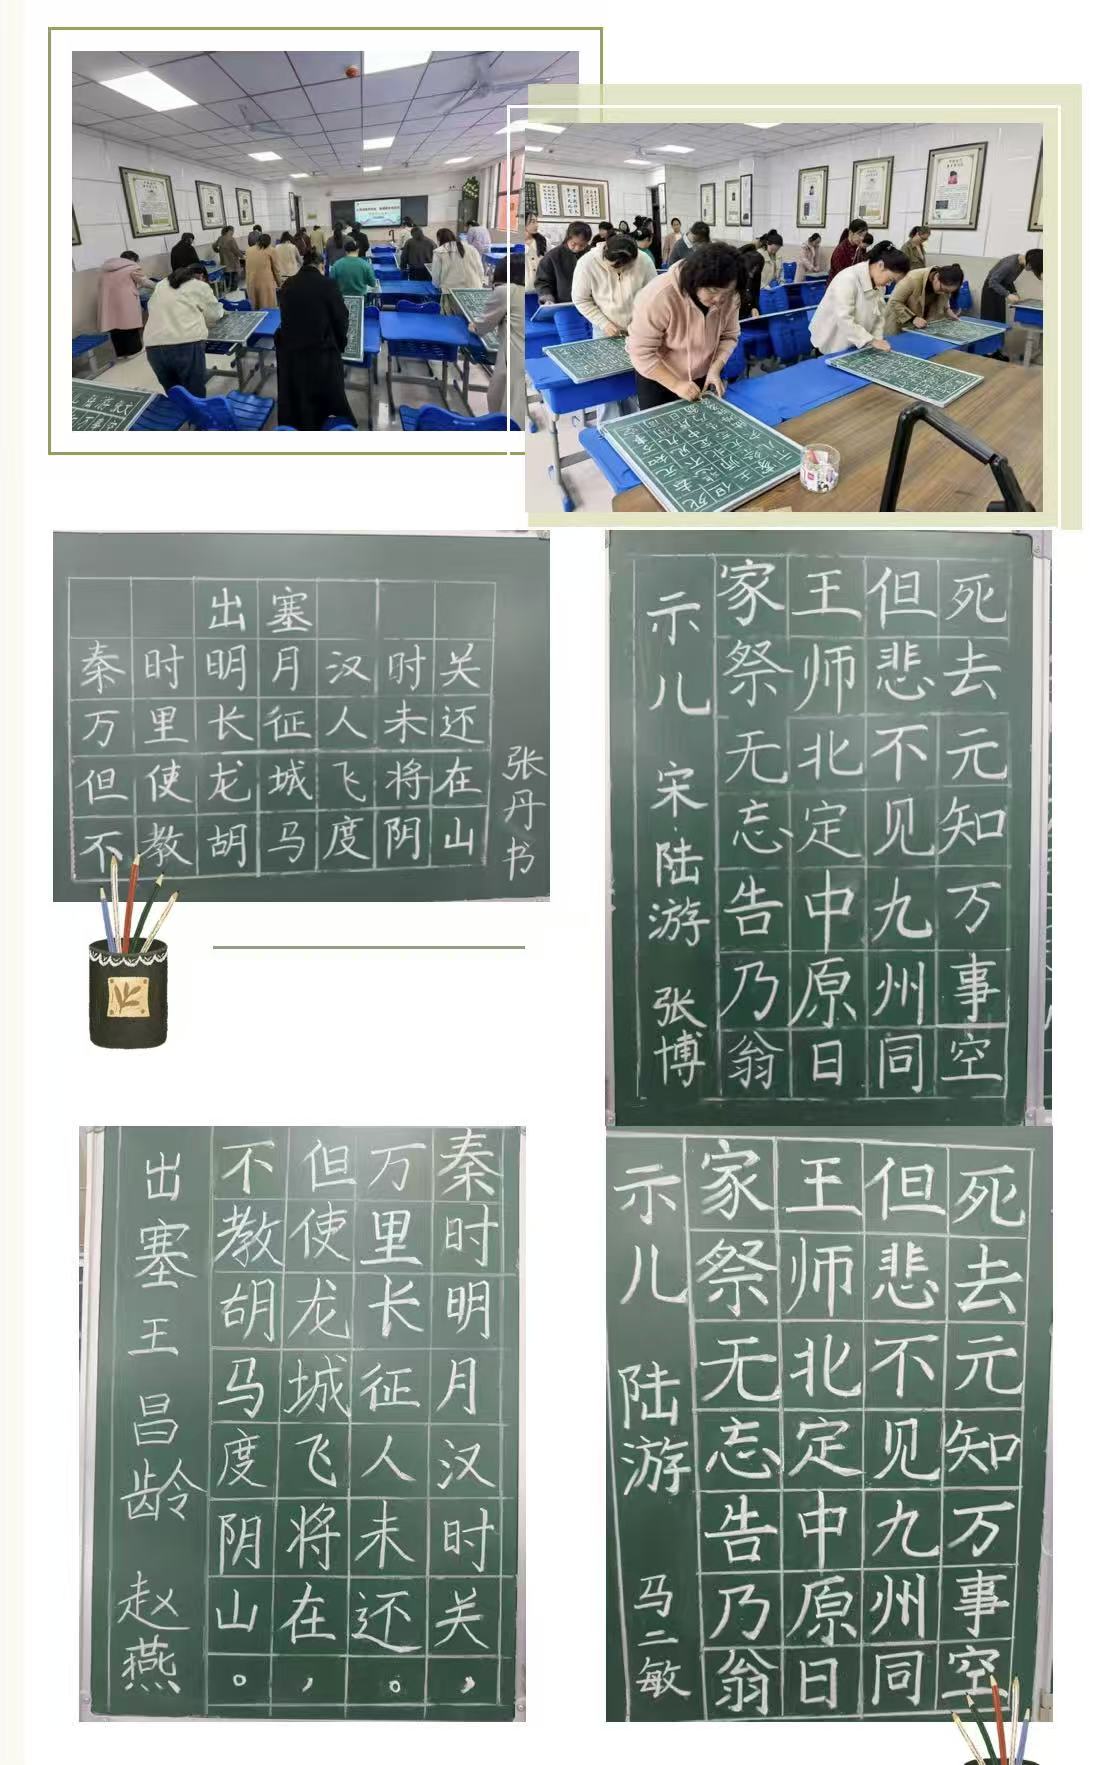 出塞
秦时明月汉时关
万里长征人未还
但使龙城飞将在
不教胡马度阴山
张丹书
死去元知万事空
但悲不见九州同
王师北定中原日
家祭无忘告乃翁
示儿 宋·陆游 张博
秦时明月汉时关，
万里长征人未还。
但使龙城飞将在，
不教胡马度阴山。
出塞 王昌龄 赵燕
死去元知万事空
但悲不见九州同
王师北定中原日
家祭无忘告乃翁
示儿 陆游 马二敏